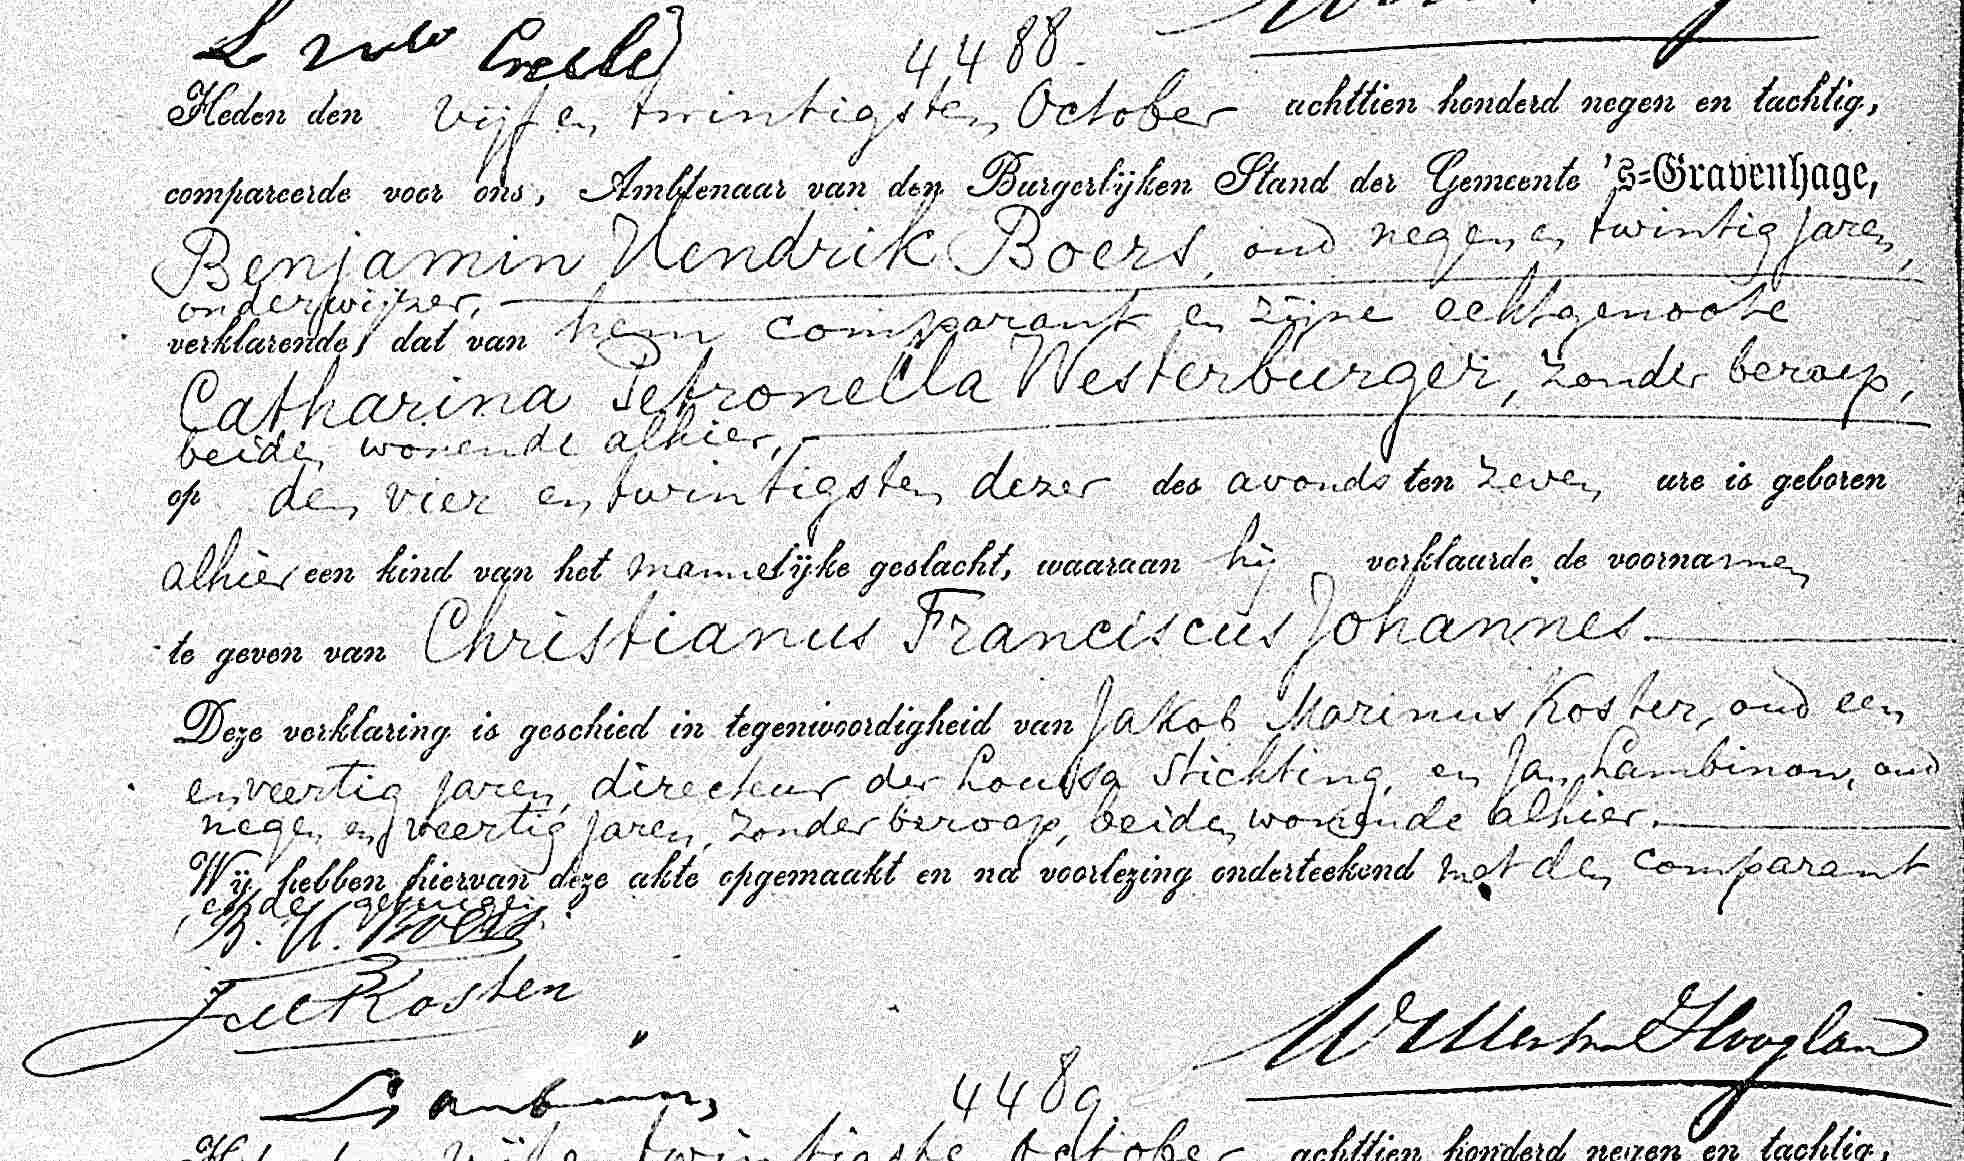 4488.
Heden den vijf en twintigsten October achttien honderd negen en tachtig,
compareerde voor ons, Ambtenaar van den Burgerlijken Stand der Gemeente 's-Gravenhage,
Benjamin Hendrik Boers, oud negen en twintig jaren,
onderwijzer,
verklarende, dat van hem comparant en zijne echtgenoote
Catharina Petronella Westerburger, zonder beroep,
beiden wonende alhier,
op den vier en twintigsten dezer des avonds ten zeven ure is geboren
alhier een kind van het mannelijke geslacht, waaraan hij verklaarde de voornamen
te geven van Christianus Franciscus Johannes
Deze verklaring is geschied in tegenwoordigheid van Jakob Marinus Koster, oud een
en veertig jaren, directeur der Louisa Stichting, en Jan Lambinon, oud
negen en veertig jaren, zonder beroep, beiden wonende alhier.
Wij hebben hiervan deze akte opgemaakt en na voorlezing onderteekend met den comparant
en de getuigen.
B. H. Boers
Koster
4489.
Heden den vijf en twintigste October achttien honderd negen en tachtig,